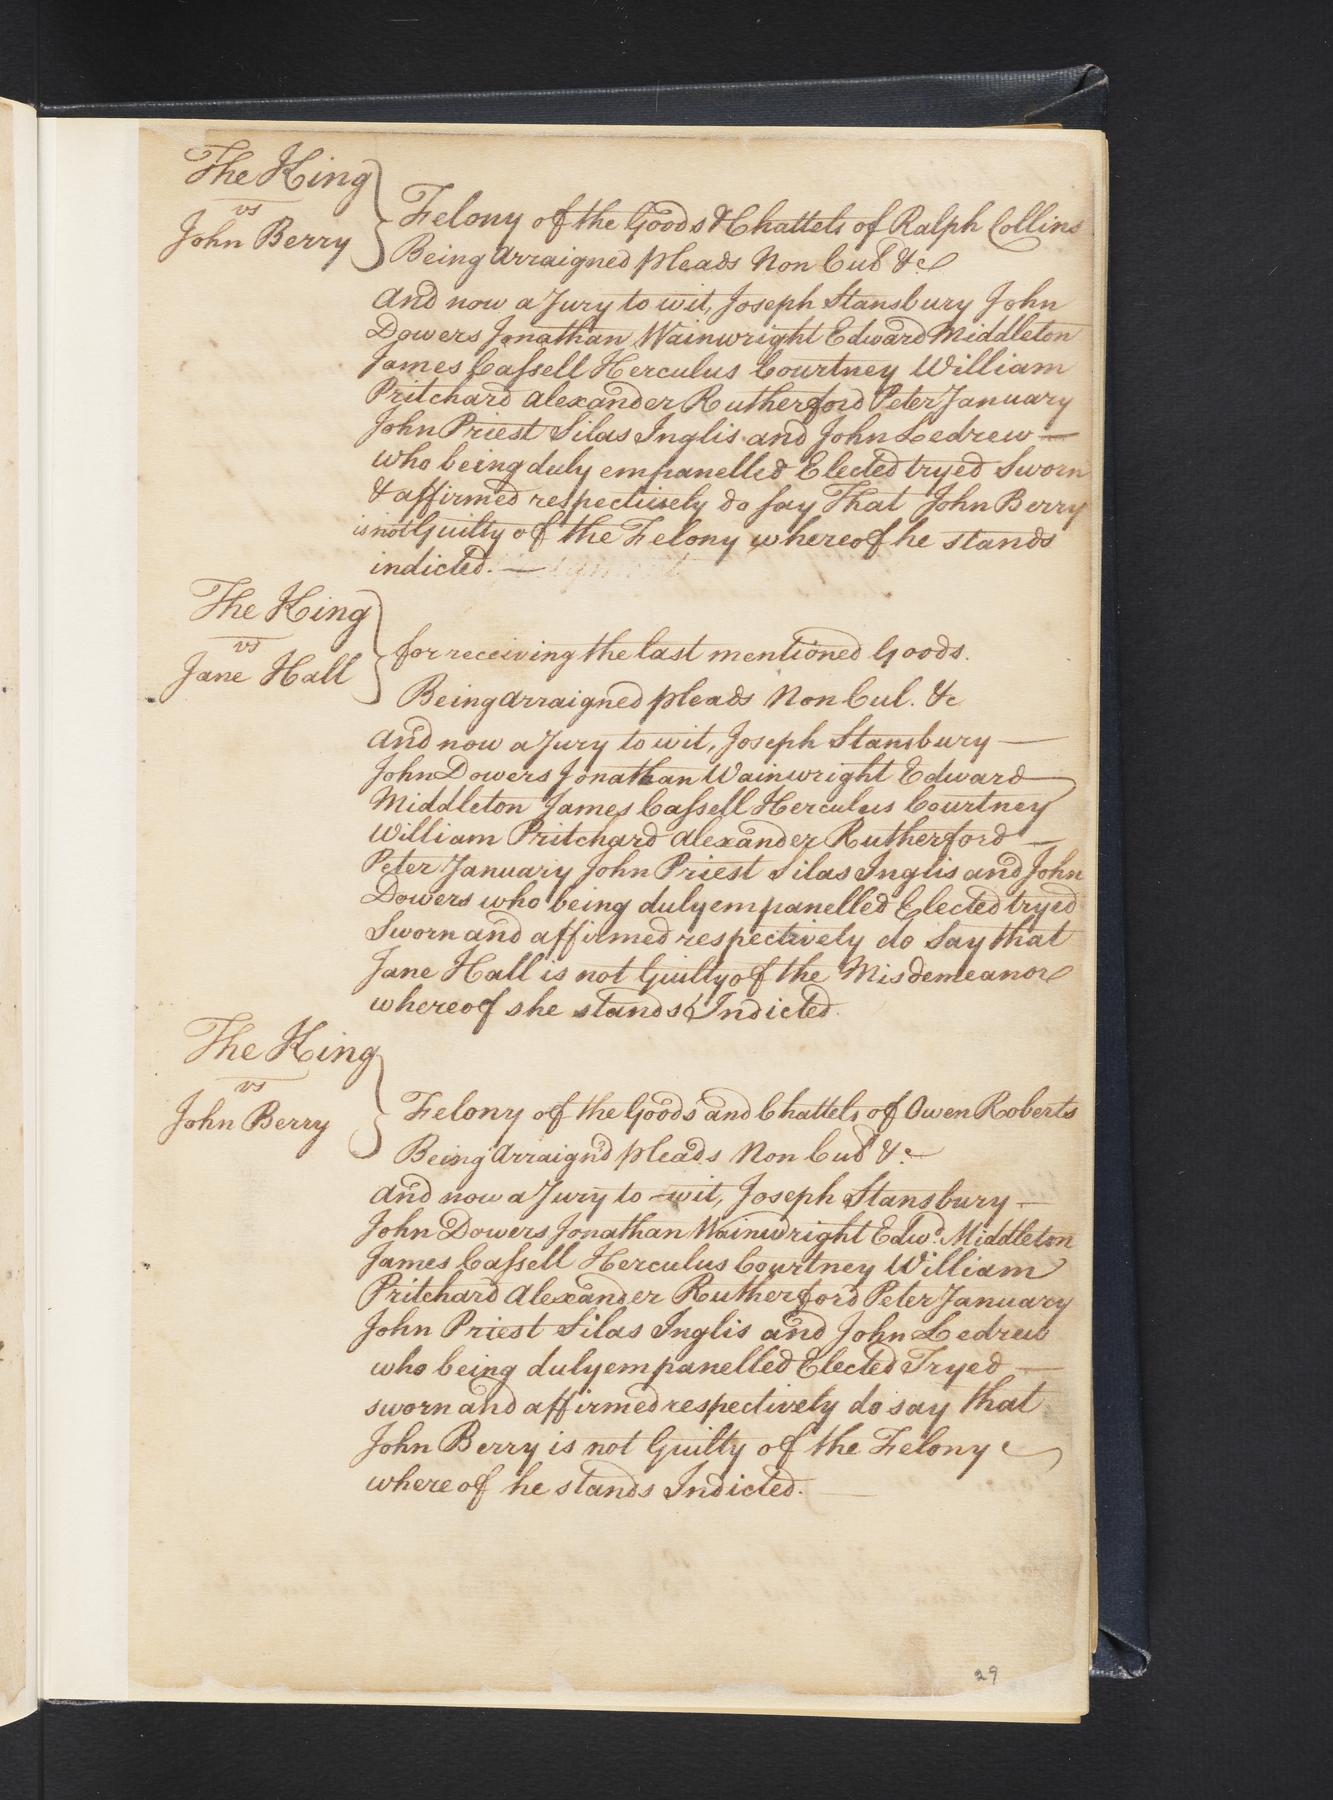 The King
vs
John Berry
Felony of the Goods & Chattels of Ralph Collins
Being Arraigned pleads Non Cul &c
And now a Jury to wit, Joseph Stansbury John
Dowers Jonathan Wainwright Edward Middleton
James Caſsell Herculus Courtney William
Pritchard Alexander Rutherford Peter January
John Priest Silas Inglis and John Ledrew —
who being duly empanelled Elected tryed Sworn
& affirmed respectively do say That John Berry
is not Guilty of the Felony whereof he stands
indicted. —
The King
vs
Jane Hall
for receiving the last mentioned Goods.
Being Arraigned pleads Non Cul. &c
And now a Jury to wit, Joseph Stansbury —
John Dowers Jonathan Wainwright Edward
Middleton James Caſsell Herculus Courtney
William Pritchard Alexander Rutherford —
Peter January John Priest Silas Inglis and John
Dowers who being duly empanelled Elected tryed
Sworn and affirmed respectively do Say that
Jane Hall is not Guilty of the Misdemeanor
whereof she stands Indicted.
The King
vs
John Berry
Felony of the Goods and Chattels of Owen Roberts
Being Arraign'd pleads Non Cul &c
And now a Jury to wit, Joseph Stansbury —
John Dowers Jonathan Wainwright Edwd. Middleton
James Caſsell Herculus Courtney William
Pritchard Alexander Rutherford Peter January
John Priest Silas Inglis and John Ledrew
who being duly empanelled Elected Tryed —
sworn and affirmed respectively do say that
John Berry is not Guilty of the Felony
whereof he stands Indicted. —
29